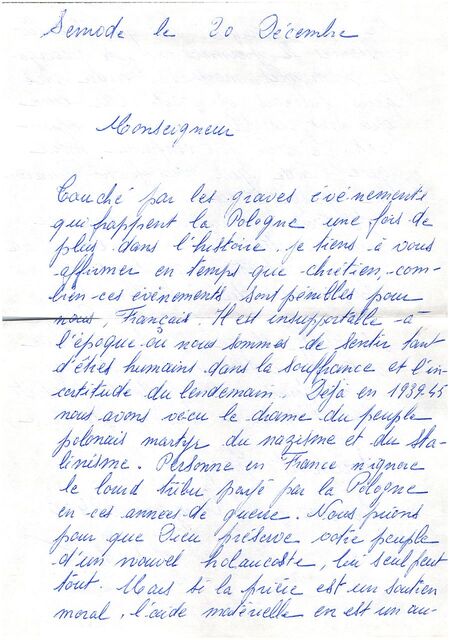 Semode le 20 Décembre
Monseigneur
Touché par les graves événements
qui frappent la Pologne une fois de
plus dans l'histoire, je tiens à vous
affirmer en temps que chrétien com-
bien ces événements sont pénibles pour
nous, Français. Il est insupportable à
l'époque où nous sommes de sentir tant
d'êtres humains dans la souffrance et l'in-
certitude du lendemain. Déjà en 1939.45
nous avons vécu le drame du peuple
polonais martyr du nazisme et du Sta-
linisme. Personne en France n'ignore
le lourd tribu payé par la Pologne
en ces années de guerre. Nous prions
pour que Dieu préserve votre peuple
d'un nouvel holaucoste, lui seul peut
tout. Mais si la prière est un soutien
moral, l'aide matérielle en est un au-